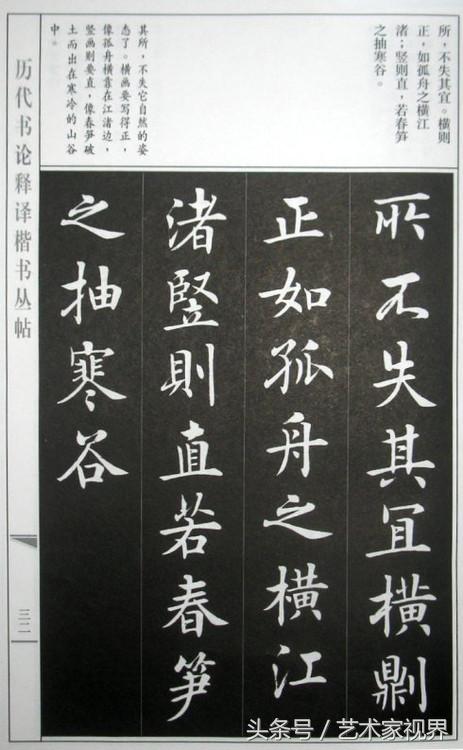 所，不失其宜。横则
正，如孤舟之横江
渚；竖则直，若春笋
之抽寒谷。
其所，不失它自然的姿
态了。横画要写得正，
像孤舟横靠在江渚边，
竖画则要直，像春笋破
土而出在寒冷的山谷
中。
所不失其冝橫則
正如孤舟之橫江
渚竪則直若春笋
之抽寒谷
历代书论释译楷书丛帖
三二
头条号/艺术家视界